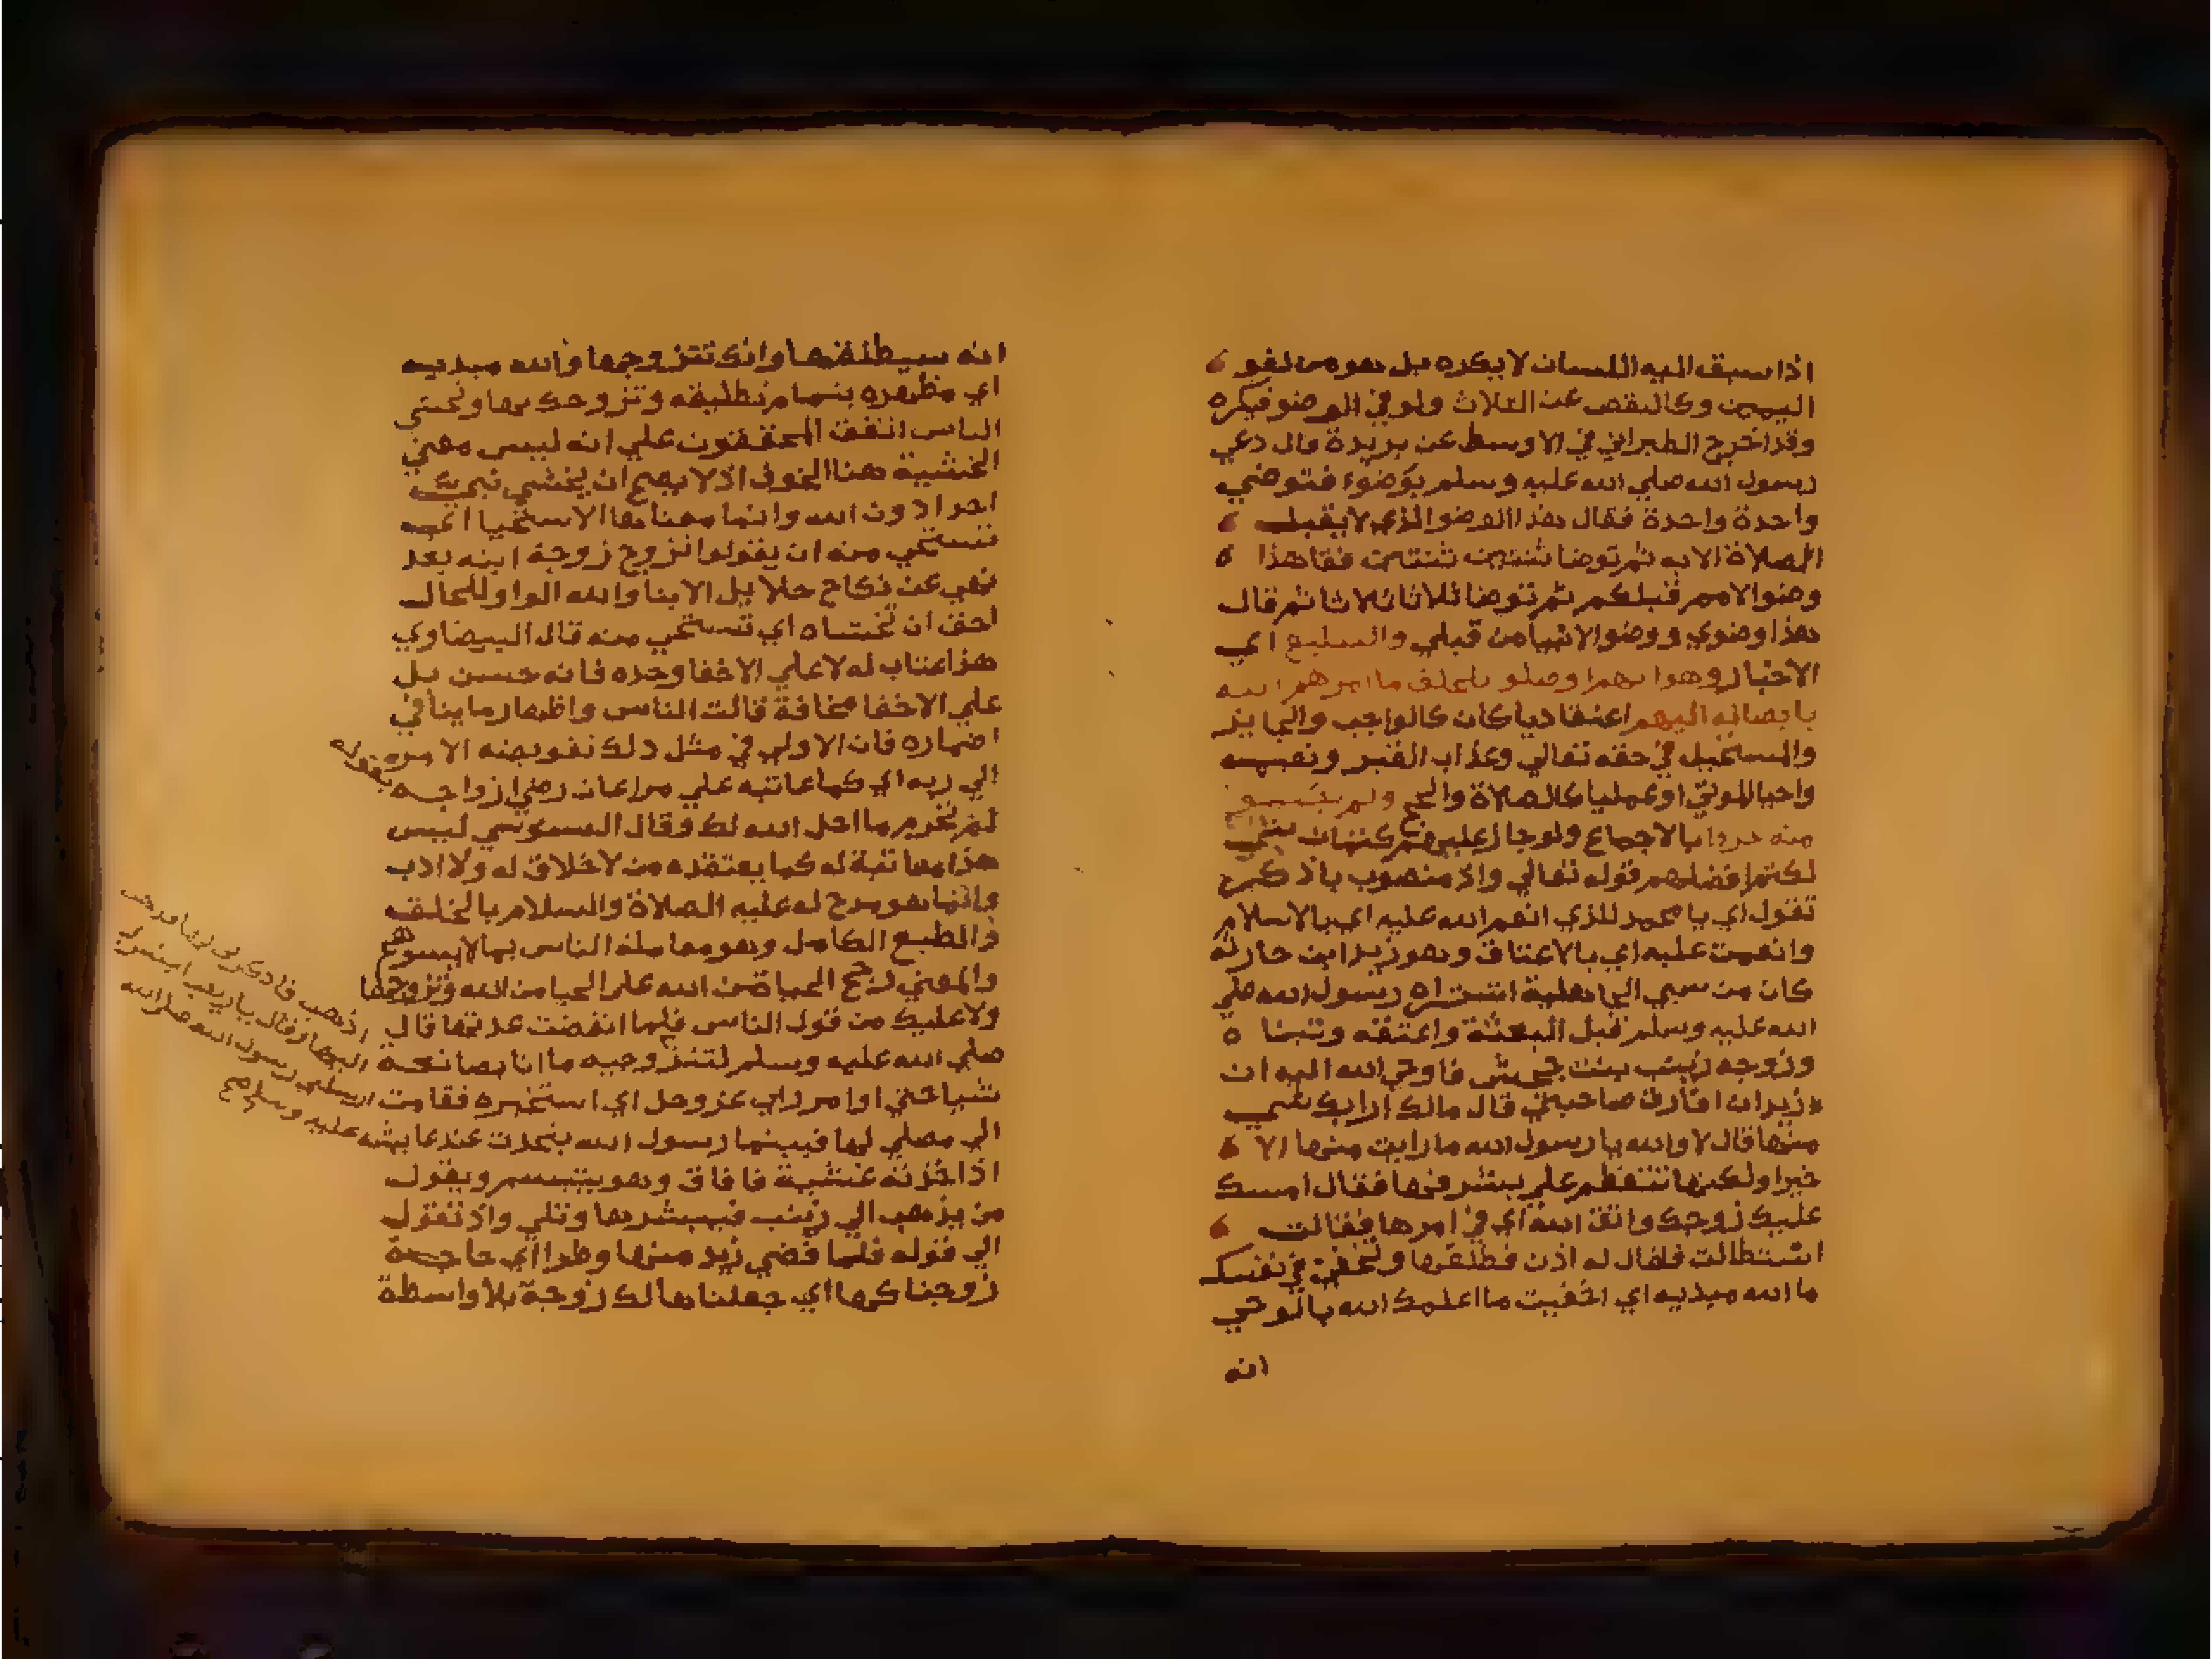 اذا سبق اليه اللسان لا يكره بل هو من لغو
اليمين وكالنقص عن الثلاث ولو في الوضو فيكره
وقد اخرج الطبراني في الاوسط عن بريدة قال دعي
رسول الله صلي الله عليه وسلم بوضوء فتوضي
واحدة واحدة فقال هذا الوضو الذي لا يقبل
الصلاة الا به ثم توضا ثنتين ثنتين فقا هذا
وضو الامم قبلكم ثم توضا ثلاثا ثلاثا ثم قال
هذا وضوي ووضو الانبيا من قبلي والتبليغ اي
الاخبار وهو انهم اوصلو للخلف ما امرهم الله
بايصاله اليهم اعتقاديا كان كالواجب والجايز
والمستحيل في حقه تعالي وعذاب القبر ونعيمه
واحيا الموتي او عمليا كالصلاة والحج ولم
منه حرفا بالاجماع ولو جاز عليهم كتمان
لكتم افضلهم قوله تعالي واذ منصوب باذكر
تقول اي يا محمد للذي انعم الله عليه اي بالاسلام
وانعمت عليه اي بالاعتاق وهو زيد ابن حارثة
كان من سبي الجاهلية اشتراه رسول الله صلي
الله عليه وسلم قبل البعثة واعتقه وتبنا ه
وزوجه زينب بنت جحش فاوحي الله اليه ان
زيد ان افارق صاحبتي قال مالك ارابك شي
منها قال لا والله يا رسول الله ما رايت منها الا
خيرا ولكنها تتعظم علي بشرفها فقال امسك
عليك زوجك واتق الله اي في امرها فقالت
استطالت فقال له اذن فطلقها وتخفي في نفسك
ما الله مبديه اي اخفيت ما اعلمك الله بالوحي
انه
انه سيطلقها وانك تتزوجها والله مبديه
اي مظهره بتمام تطليقه وتزوجك بها وتخشي
الناس اتفق المحققون علي انه ليس معني
الخشية هنا الخوف اذ لا يصح ان يخشي نبي
احدا دون الله وانما معناها الاستحيا اي
تستحي منه ان يقولوا تزوج زوجة ابنه بعد
نهي عن نكاح حلايل الابنا والله الواو للحال
احق ان تخشاه اي تستحي منه قال البيضاوي
هذا عتاب له لا علي الاخفا وحده فانه حسن بل
علي الاخفا مخافة قالت الناس واظهار ما ينافي
اضماره فان الاولي في مثل ذلك تفويضه الامر
الي ربه اي كما عاتبه علي مراعات رضي ازواجه بقوله
لم تحرم ما احل الله لك فقال السنوسي ليس
هذا معاتبة له كما يعتقده من لا خلاق له ولا ادب
وانما هو مدح له عليه الصلاة والسلام بالخلق
والطبع الكامل وهو معاملة الناس بما لا يسوهم
والمعني لرجح الحيا من الله علي الحيا من الله وتزوجها
ولا عليك من قول الناس فلما انقضت عدتها قال
صلي الله عليه وسلم لتزوجيه ما انا بصانعة
شيا حتي اوامر رابي عز وجل اي استخيره فقامت
الي مصلي لها فبينما رسول الله يتحدث عند عايشه
اذا اخذته غشية فافاق وهو يتبسم ويقول
من يذهب الي زينب فيبشرها وتلي واذ تقول
الي قوله فلما قضي زيد منها وطرا اي حاجة
زوجناكها اي جعلناها لك زوجة بلا واسطة
اذهب فاذكرني لها فذهب
اليها وقال يا زينب ابشري
ارسلني رسول الله صلي الله
عليه وسلم صح